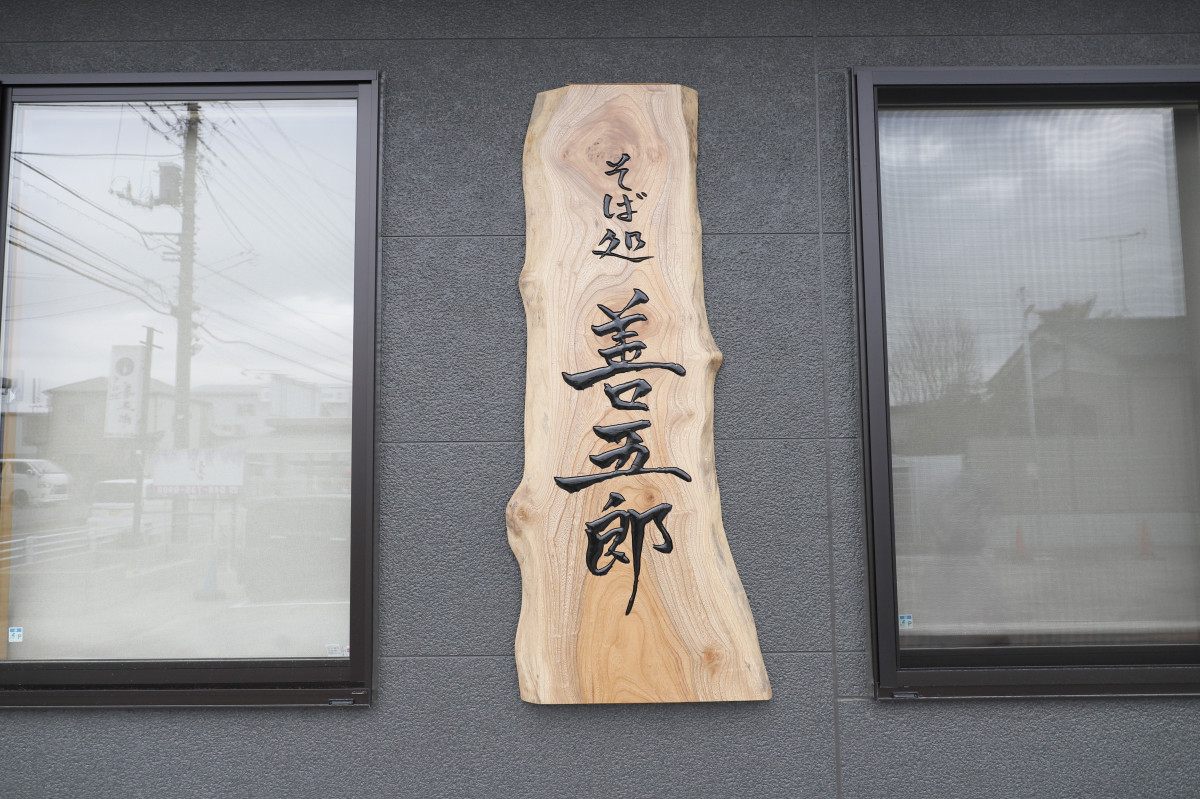 そば処
善五郎